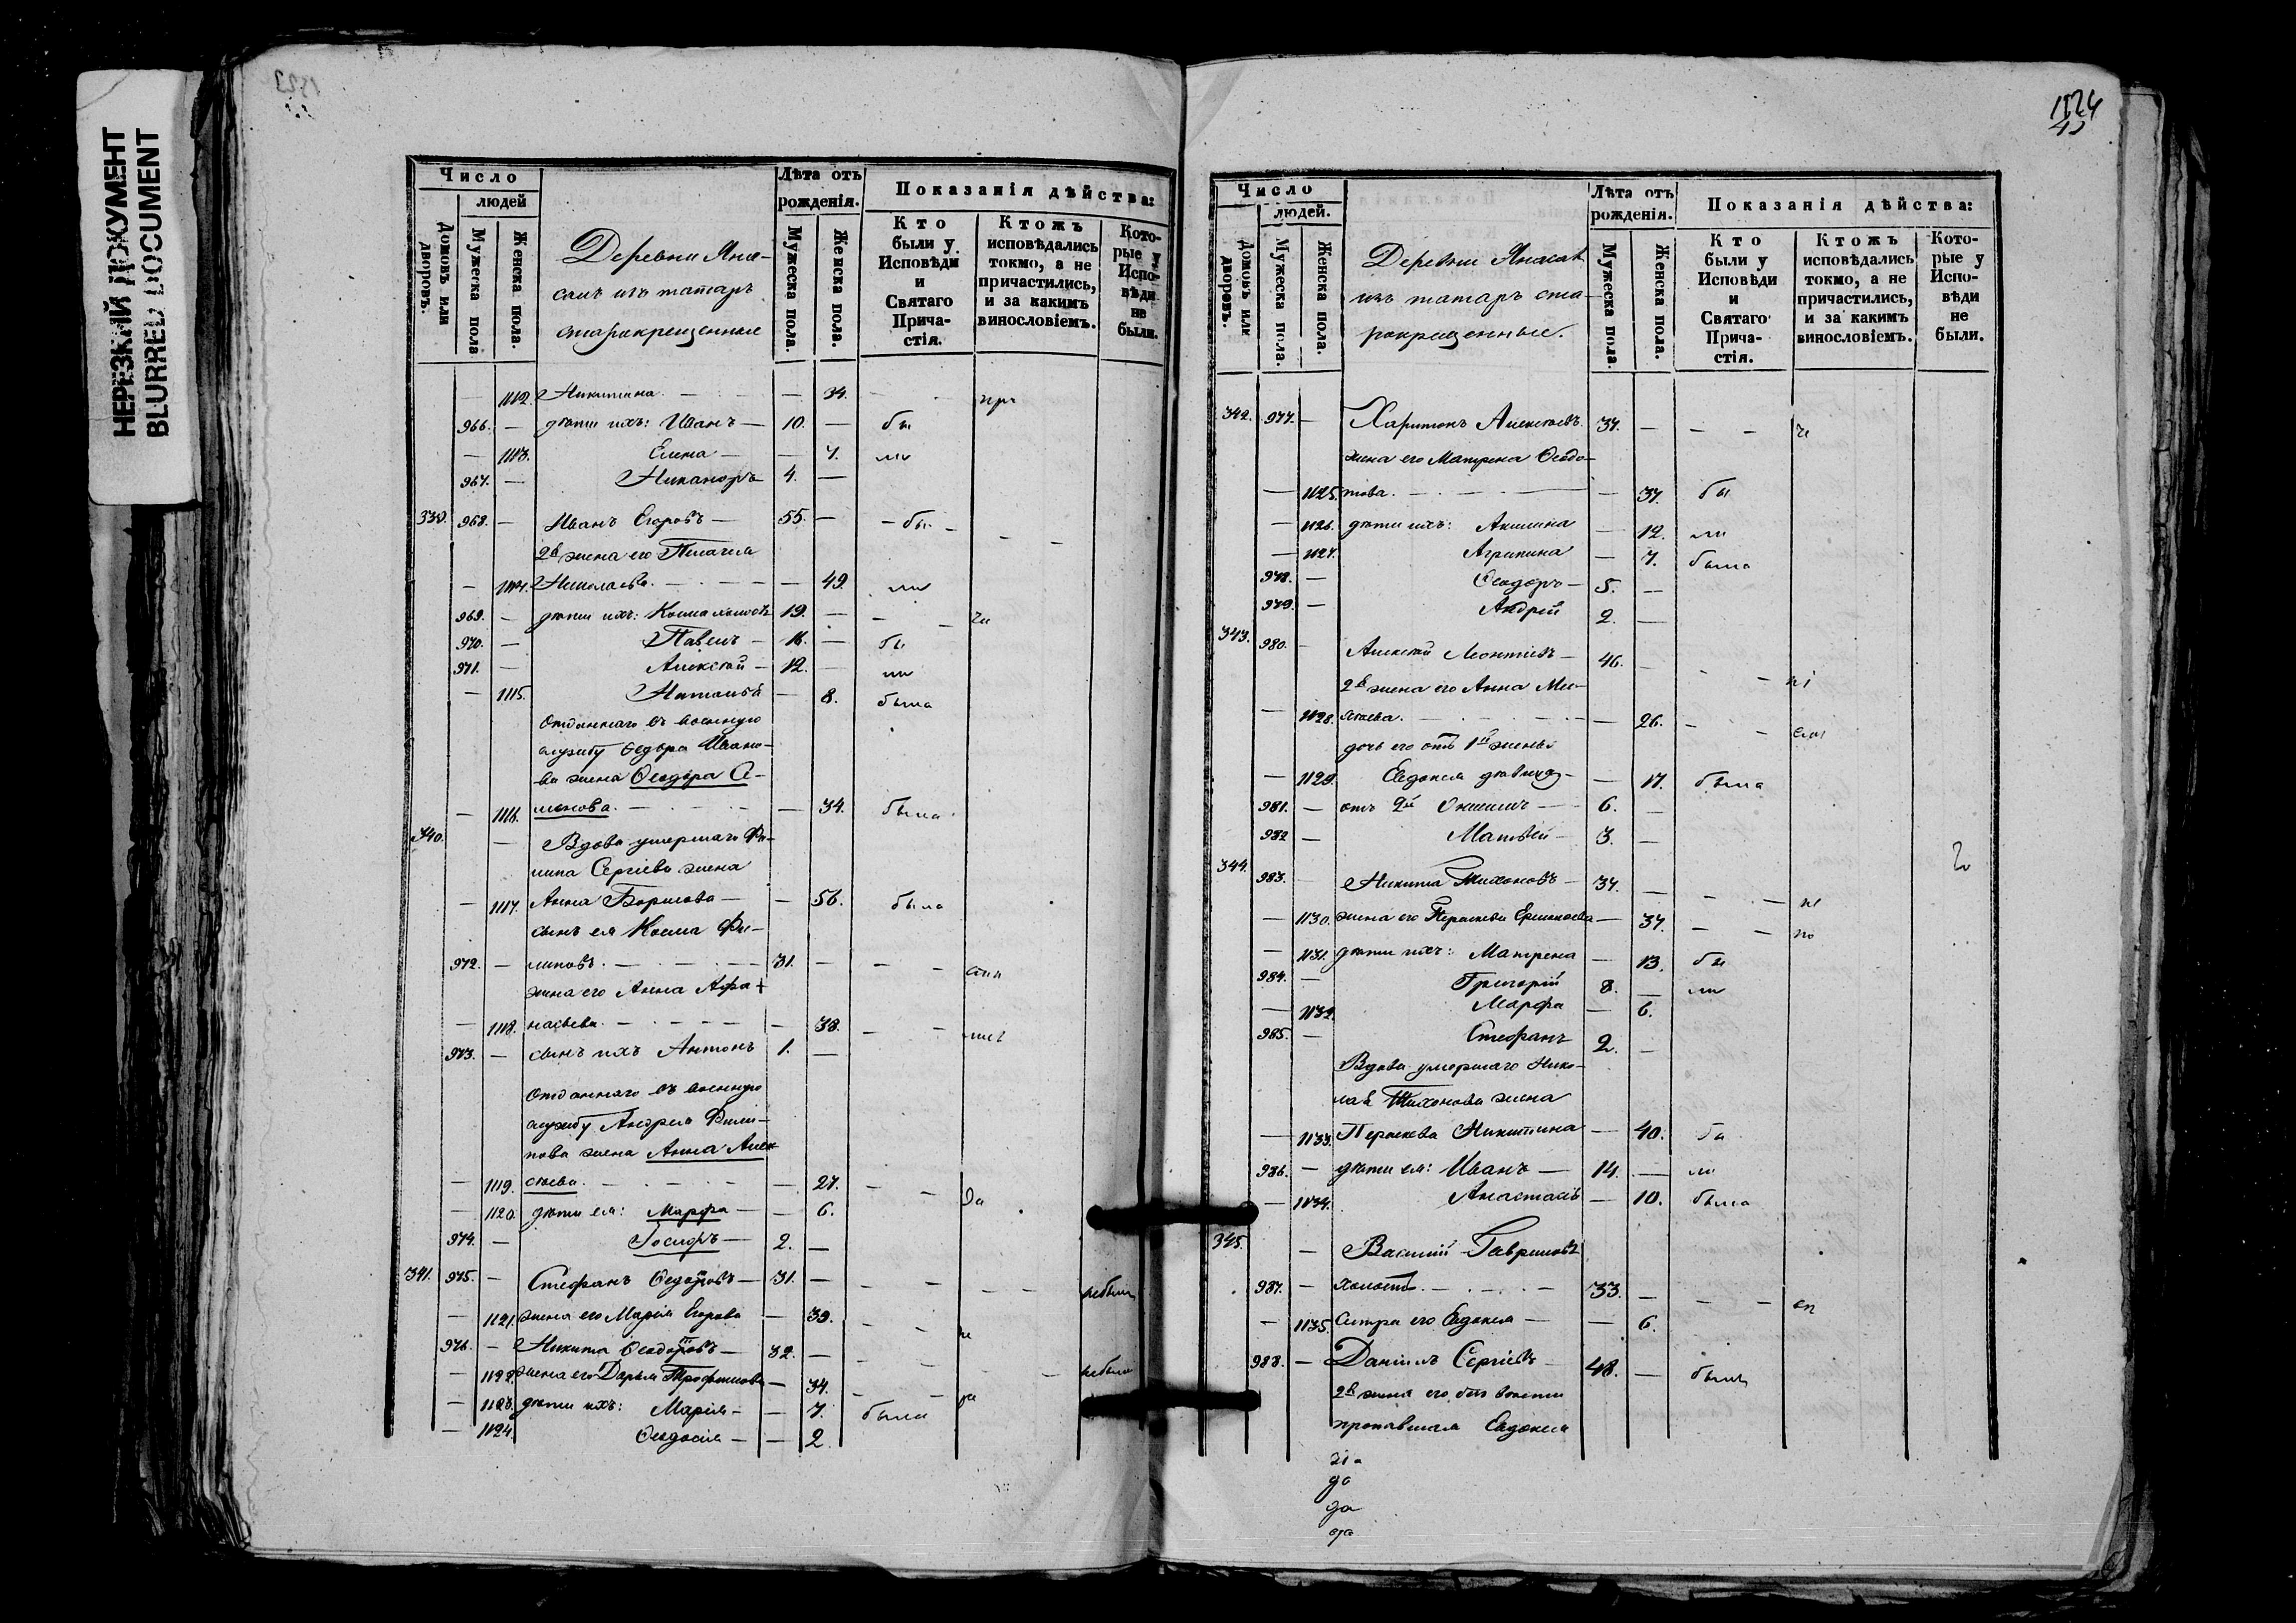 НЕРЕЗКИЙ ДОКУМЕНТ
BLURRED DOCUMENT
Число
людей
Домовъ или дворовъ.
Мужеска пола
Женска пола.
Деревни Яна-
салъ изъ татаръ
старокрещенные
Лѣта отъ рожденія.
Мужеска пола.
Женска пола.
Показанія дѣйства:
Кто были у Исповѣди и Святаго Прича-стія.
Ктожъ исповѣдались токмо, а не причастились, и за какимъ винословіемъ.
Кото-рые у Испо-вѣди не были.
— 1112. Никитина — — 34.
966. — дѣти ихъ: Иванъ — 10. — бы
— 1113. Елена — — 7. ли
967. — Никаноръ 4. —
339. 968. — Иванъ Егоровъ — 55. — бы
2я жена его Пелагея
— 1114. Николаева — — 49. ли
969. — дѣти ихъ: Косма холостъ 19. —
970. — Павелъ — 16. — бы
971. — Алексѣй — 12. — ли
— 1115. Наталья — 8. была
Отданнаго въ военную
службу Ѳедора Ивано-
ва жена Ѳеодора Се-
— 1116. менова — — 34. была
340. — Вдова умершаго Фи-
липа Сергѣева жена
— 1117. Анна Борисова — — 56. была
сынъ ея Косма Фи-
972. — липовъ. — 31. —
жена его Анна Афа-
— 1118. насьева. — — 38.
973. — сынъ ихъ Антонъ 1. —
Отданнаго въ военную
службу Андрея Фили-
пова жена Анна Алек-
— 1119. сѣева. — — 27.
— 1120. дѣти ея: Марфа — — 6.
974. — Іосифъ — 2. —
341. 975. — Стефанъ Ѳедотовъ — 31. — небылъ
— 1121. жена его Марія Егорова — 39.
976. — Никита Ѳеодотовъ — 32. — небылъ
— 1122. жена его Дарья Трофимова — 34.
— 1123. дѣти ихъ: Марія — — 7. была
— 1124. Ѳеодосія — — 2.
1524
Число
людей.
Домовъ или дворовъ.
Мужеска пола.
Женска пола.
Деревни Янасалъ
изъ татаръ ста-
рокрещенные.
Лѣта отъ рожденія.
Мужеска пола.
Женска пола.
Показанія дѣйства:
Кто были у Исповѣди и Святаго Прича-стія.
Ктожъ исповѣдались токмо, а не причастились, и за какимъ винословіемъ.
Кото-рые у Испо-вѣди не были.
342. 977. — Харитонъ Алексѣевъ. 37. —
жена его Матрена Ѳедо-
— 1125. това. — — 37. бы
— 1126. дѣти ихъ: Акилина — 12. ли
— 1127. Агрипина — 7. была
978. — Ѳеодоръ — 5. —
979. — Андрей 2. —
343. 980. — Алексѣй Леонтьевъ — 46. —
2я жена его Анна Ми-
— 1128. хѣева. — — 26.
дочь его отъ 1й жены
— 1129. Евдокия дѣвица — — 17. была
981. — отъ 2й 6. —
982 — Матвѣй — 3. —
344. 983. — Никита Тихоновъ — 37. —
— 1130. жена его Параскева Ермолаева — 37.
— 1131. дѣти ихъ: Матрена — 13. бы
984. — Григорій 8. — ли
— 1132. Марфа — 6.
985. — Стефанъ 2. —
Вдова умершаго Нико-
лая Тихонова жена
— 1133. Параскева Никитина — 40. бы
986. — дѣти ея: Иванъ — 14. — ли
— 1134. Анастасія — 10. была
345. — Василій Гавриловъ
987. — холостъ. — 33. —
— 1135. Сестра его Евдокия — — 6.
988. — Даніилъ Сергѣевъ 48. — былъ
2я жена его безъ вести
пропавшая Евдокия